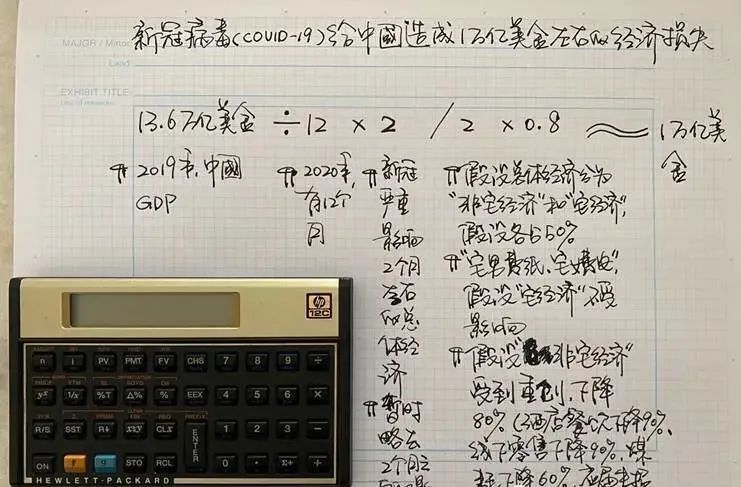 MAJOR / Minor
Lead
EXHIBIT TITLE
新冠病毒(COVID-19)给中國造成1万亿美金左右的经济损失
13.6万亿美金 ÷12 × 2 / 2 × 0.8 ≈ 1万亿美金
2019年,中國
GDP
2020年,
有12个
月
新冠
严重
影响
2个月
左右
的总
体经
济
暂时
略去
2个月
假设总体经济分为
"非宅经济"和"宅经济",
假设各占50%
假设"宅经济"不受
影响
假设"非宅经济"
受到重创,下降
80%(酒店餐饮下降90%、
线下零售下降90%、煤
耗下降60%、
hp
12C
n i PV PMT FV CHS 7 8 9 ÷
yˣ 1/x %T Δ% % EEX 4 5 6 ×
R/S SST R↓ x≷y CLx ENTER 1 2 3 −
ON f g STO RCL 0 . Σ+ +
HEWLETT-PACKARD